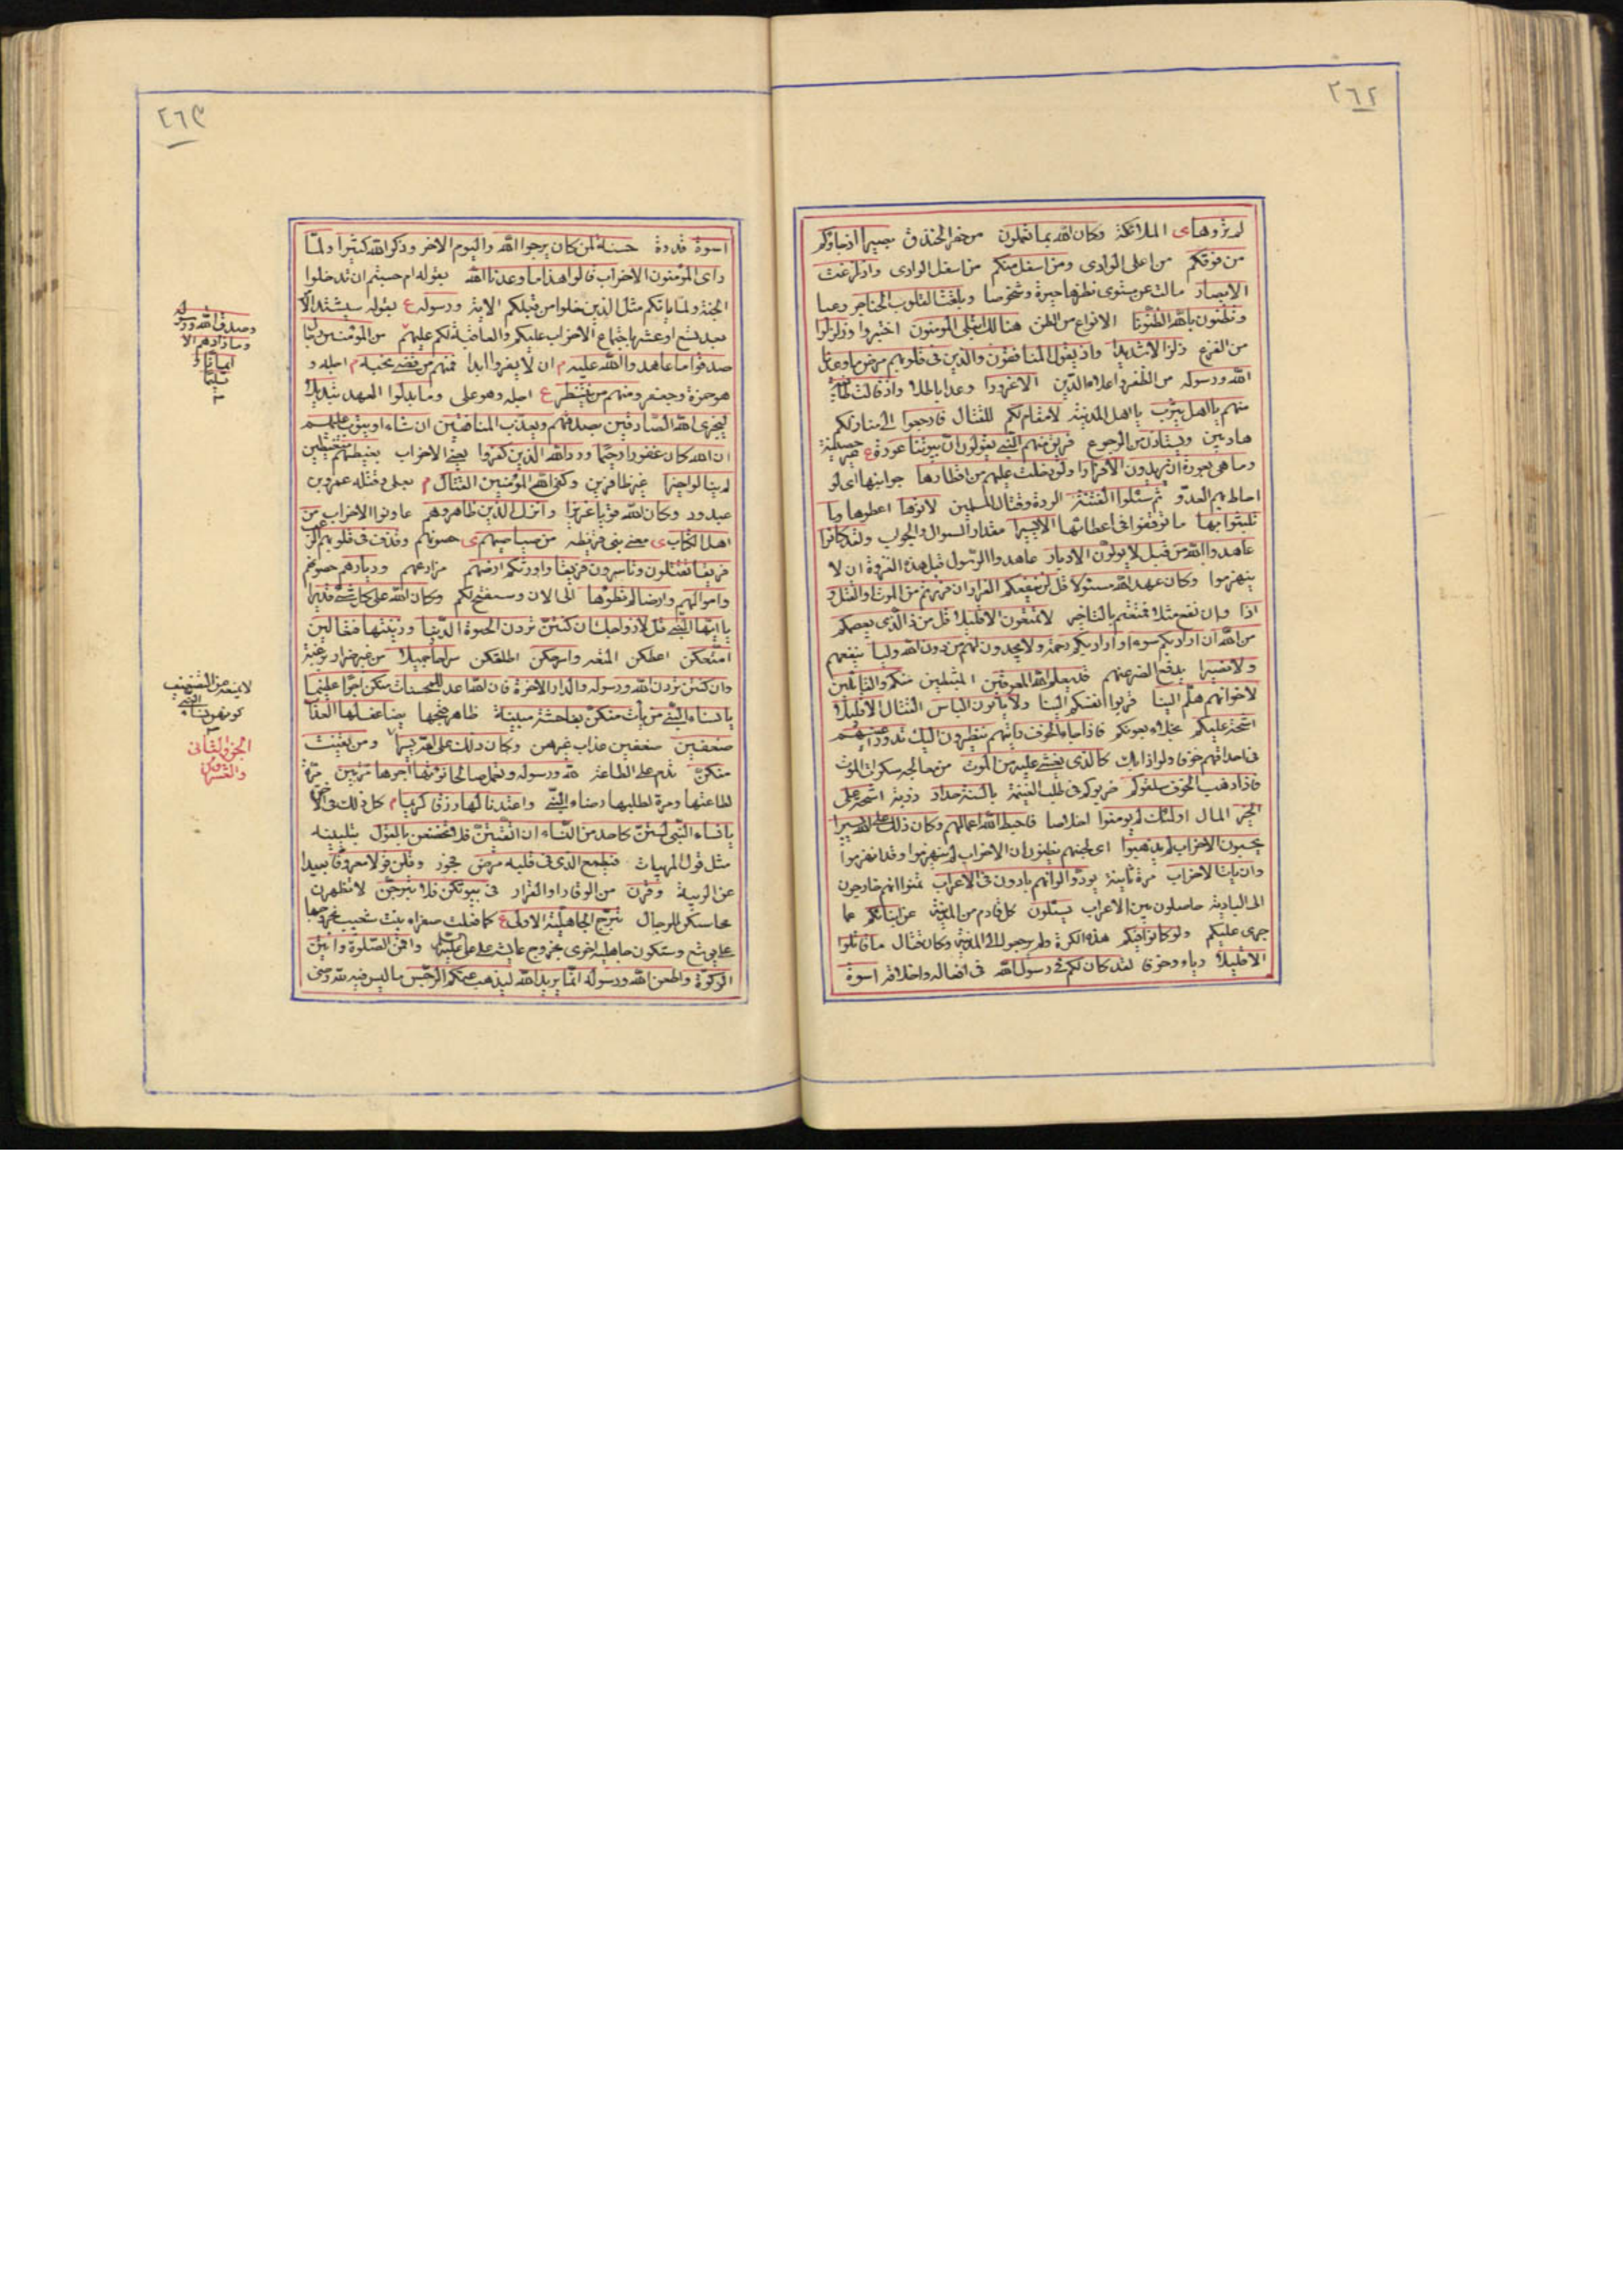 ٢٦٢
لم تروها ى الملائكة وكان الله بما تعملون من حفر الخندق بصيرا اذ جاؤكم
من فوقكم من اعلى الوادى ومن اسفل منكم من اسفل الوادى واذ زاغت
الابصار مالت عن مستوى نظرها حيرة وشخوصا وبلغت القلوب الحناجر رعبا
وتظنون بالله الظنونا الانواع من الظن هنالك ابتلى المؤمنون اختبروا وزلزلوا
من الفزع زلزالا شديدا واذ يقول المنافقون والذين فى قلوبهم مرض ما وعدنا
الله ورسوله من الظفر واعلاء الدين الا غرورا وعدا باطلا واذ قالت طائفة
منهم يا اهل يثرب يا اهل المدينة لا مقام لكم للقتال فارجعوا الى منازلكم
هاربين ويستأذن من الرجوع فريق منهم النبي يقولون ان بيوتنا عورة ع غير حصينة
وما هى بعورة ان يريدون الا فرارا ولو دخلت عليهم من اقطارها جوانبها اى لو
احاط بهم العدو ثم سئلوا الفتنة الردة وقتال المسلمين لاتوها اعطوها وما
تلبثوا بها ما توقفوا فى اعطائها الا يسيرا مقدار السوال والجواب ولقد كانوا
عاهدوا الله من قبل لا يولون الادبار عاهدوا الرسول قبل هذه الغزوة ان لا
ينهزموا وكان عهد الله مسئولا قل لن ينفعكم الفرار ان فررتم من الموت او القتل و
اذا وان نفع مثلا فمتعتم بالتاخير لا تمتعون الا قليلا قل من ذا الذى يعصمكم
من الله ان اراد بكم سوء او اراد بكم رحمة ولا يجدون لهم من دون الله وليا ينفعهم
ولا نصيرا يدفع الضر عنهم قد يعلم الله المعوقين المثبطين منكم والقائلين
لاخوانهم هلم الينا قربوا انفسكم الينا ولا ياتون الباس القتال الا قليلا
اشحة عليكم بخلاء بمعونتكم فاذا جاء الخوف رايتهم ينظرون اليك تدور اعينهم
فى احداقهم خوفا ولواذا بك كالذى يغشى عليه من الموت من معالجة سكرات الموت
فاذا ذهب الخوف سلقوكم ضربوكم فى طلب الغنيمة بالسنة حداد ذربة اشحة على
الخير المال اولئك لم يومنوا اخلاصا فاحبط الله اعمالهم وكان ذلك على الله يسيرا
يحسبون الاحزاب لم يذهبوا اى لجبنهم يظنون ان الاحزاب لم ينهزموا وقد انهزموا
وان يات الاحزاب مرة ثانية يودوا لو انهم بادون فى الاعراب تمنوا انهم خارجون
الى البادية حاصلون بين الاعراب يسئلون كل قادم من المدينة عن انبائكم عما
جرى عليكم ولو كانوا فيكم هذه الكرة ولم يرجعوا الى المدينة وكان قتال ما قاتلوا
الا قليلا رياء وخوفا لقد كان لكم فى رسول الله فى افعاله واخلاقه اسوة
٢٦٣
اسوة قدوة حسنة لمن كان يرجوا الله واليوم الاخر وذكر الله كثيرا ولما
راى المؤمنون الاحزاب قالوا هذا ما وعدنا الله بقوله ام حسبتم ان تدخلوا
الجنة ولما ياتكم مثل الذين خلوا من قبلكم الاية ورسوله ع بقوله سيشتد الامر
بعد تسع او عشر باجتماع الاحزاب عليكم والعاقبة لكم عليهم من المؤمنين رجال
صدقوا ما عاهدوا الله عليه م ان لا يفروا ابدا فمنهم من قضى نحبه م اجله و
هو حمزة وجعفر ومنهم من ينتظر ع اجله وهو على وما بدلوا العهد تبديلا
ليجزى الله الصادقين بصدقهم ويعذب المنافقين ان شاء او يتوب عليهم
ان الله كان غفورا رحيما ورد الله الذين كفروا يعنى الاحزاب بغيظهم متغيظين
لم ينالوا خيرا غير ظافرين وكفى الله المؤمنين القتال م بعلى وقتله عمرو بن
عبد ود وكان الله قويا عزيزا وانزل الذين ظاهروهم عاونوا الاحزاب من
اهل الكتاب ى يعنى بنى قريظه من صياصيهم ى حصونهم وقذف فى قلوبهم الرعب
فريقا تقتلون وتاسرون فريقا واورثكم ارضهم مزارعهم وديارهم حصونهم
واموالهم وارضا لم تطؤها الى الان وسيفتح لكم وكان الله على كل شئ قديرا
يا ايها النبي قل لازواجك ان كنتن تردن الحيوة الدنيا وزينتها فتعالين
امتعكن اعطكن المتعه واسرحكن اطلقكن سراحا جميلا من غير ضرار ورغبة
وان كنتن تردن الله ورسوله والدار الاخرة فان الله اعد للمحسنات منكن اجرا عظيما
يا نساء النبي من يات منكن بفاحشة مبينة ظاهر قبحها يضاعف لها العذاب
ضعفين ضعفين عذاب غيرهن وكان ذلك على الله يسيرا ومن يقنت
منكن تدم على الطاعة لله ورسوله وتعمل صالحا نؤتها اجرها مرتين مرة
لطاعتها ومرة لطلبها رضاء النبي واعتدنا لها رزقا كريما م كل ذلك فى الاخرة
يا نساء النبى لستن كاحد من النساء ان اتقيتن فلا تخضعن بالقول بتليينه
مثل قول المريبات فيطمع الذى فى قلبه مرض فجور وقلن قولا معروفا بعيدا
عن الريبة وقرن من الوقار او القرار فى بيوتكن ولا تبرجن لا تظهرن
محاسنكن للرجال تبرج الجاهلية الاولى ع كما فعلت صفراء بنت شعيب بخروجها
على يوشع وستكون جاهلية اخرى بخروج عايشه على على واقمن الصلوة واتين
الزكوة واطعن الله ورسوله انما يريد الله ليذهب عنكم الرجس ما ليس فيه لله رضى
وصدق الله ورسوله
وما زادهم الا
ايمانا و
تسليما
لا يمنعه عن التضعيف
كونهن نساء النبي
الجزو الثانى
والعشرون